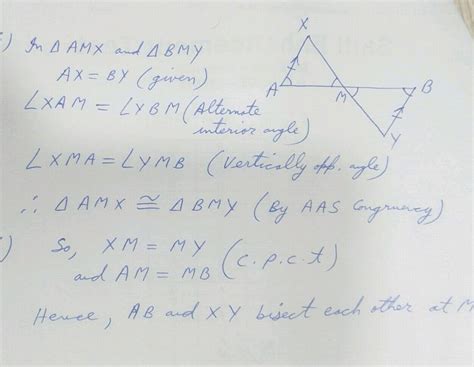 ) In Δ AMX and Δ BMY
AX = BY (given)
∠XAM = ∠YBM (Alternate
interior angle)
∠XMA = ∠YMB (Vertically opp. angle)
∴ Δ AMX ≅ Δ BMY (By AAS Congruency)
) So, XM = MY
and AM = MB (C.p.c.t)
Hence, AB and XY bisect each other at M
X
A
M
B
Y